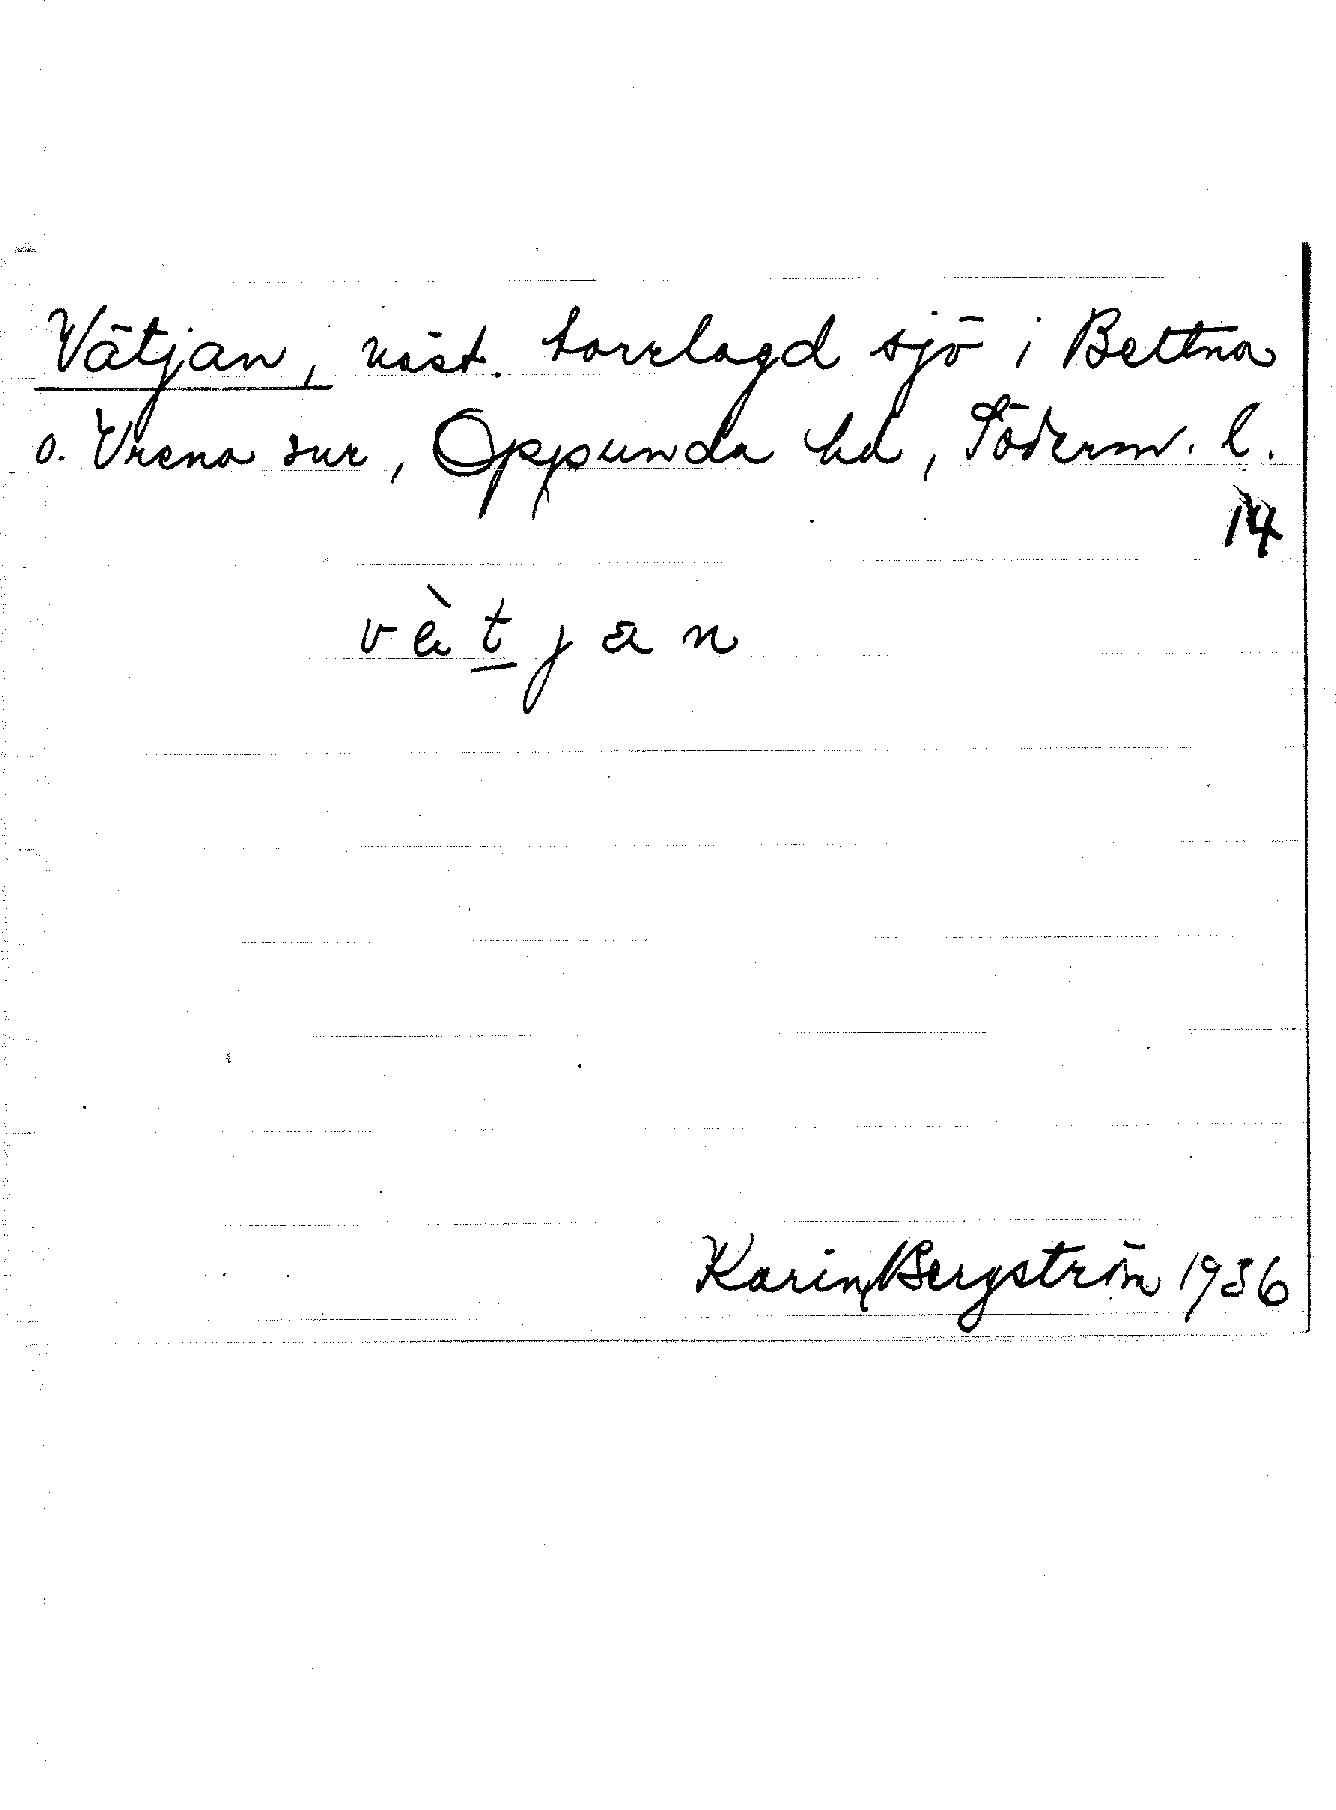 Vätjan, näst. torrlagd sjö i Bettna
o. Vrena snr, Oppunda hd, Söderm. l.
14
vä̀t̲jan
Karin Bergström 1936